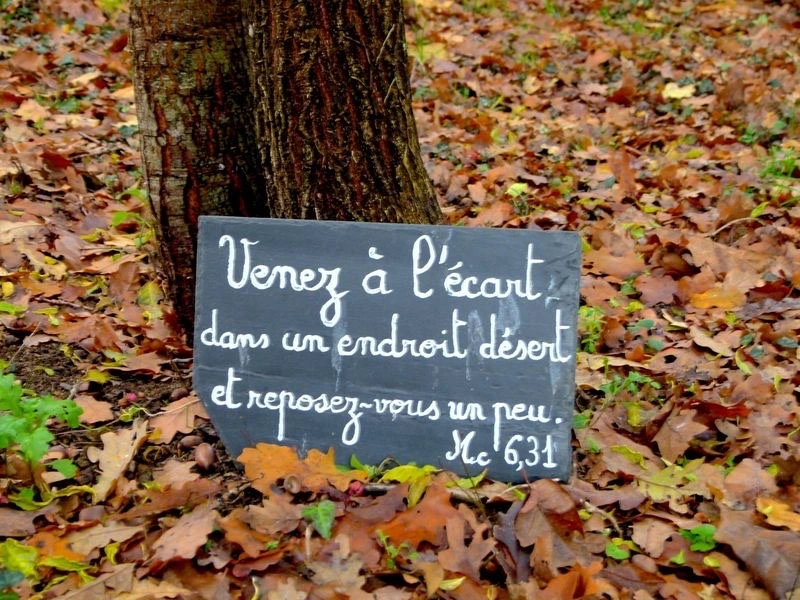 Venez à l'écart
dans un endroit désert
et reposez-vous un peu.
Mc 6,31